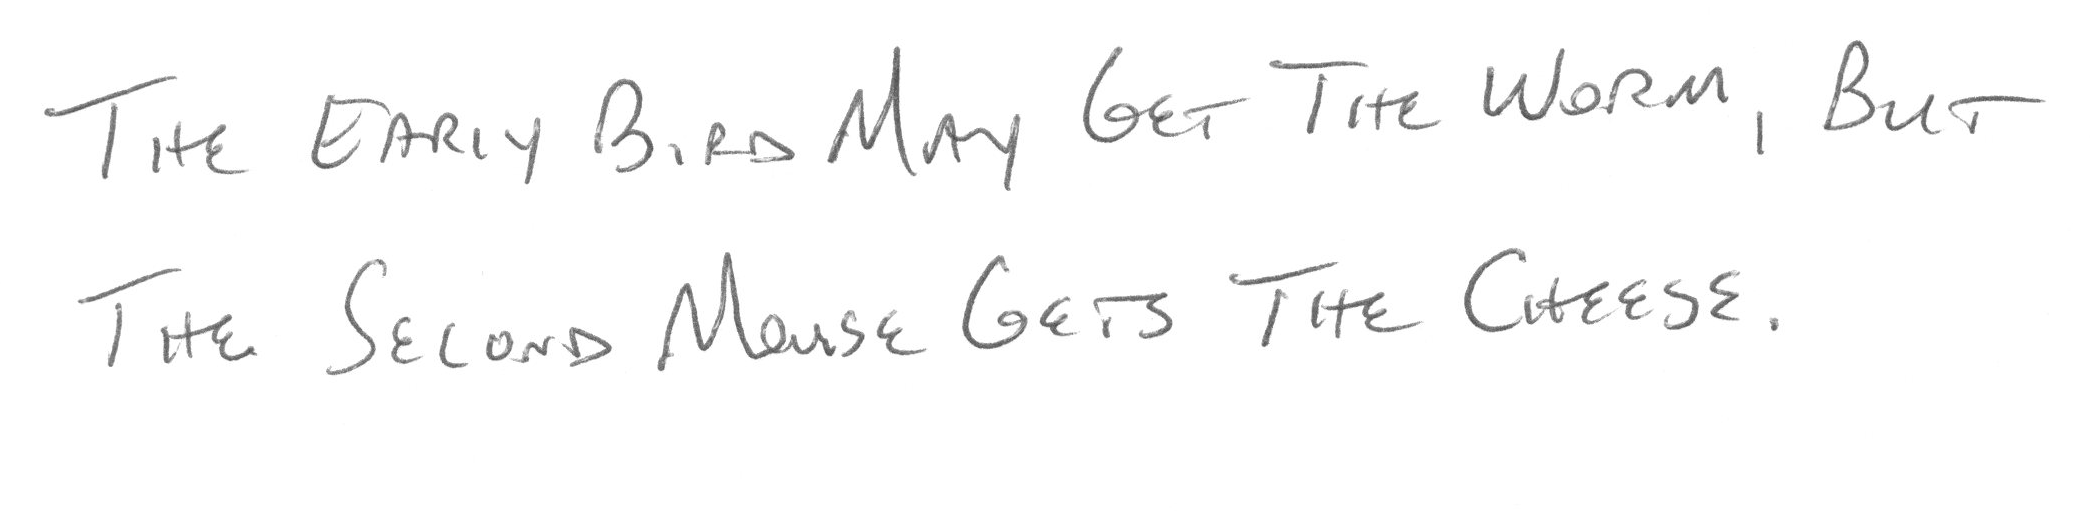 The Early Bird May Get The Worm, But
The Second Mouse Gets The Cheese.